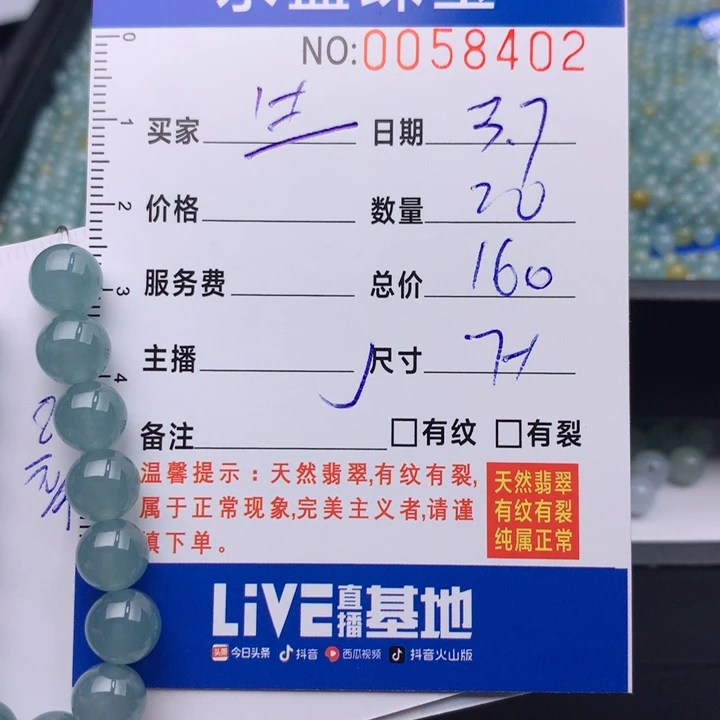 NO:0058402
买家 日期 3.7
价格 数量 20
服务费 总价 160
主播 尺寸
备注 □有纹 □有裂
温馨提示：天然翡翠,有纹有裂,
属于正常现象,完美主义者,请谨
慎下单。
天然翡翠
有纹有裂
纯属正常
LiVE直播基地
头条 今日头条 抖音 西瓜视频 抖音火山版